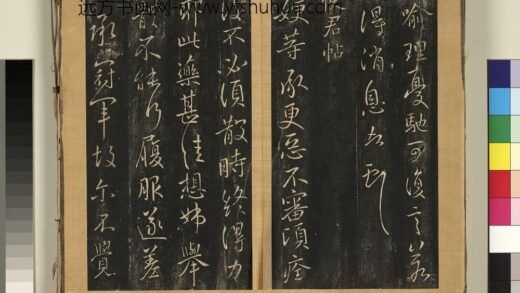 远方书画网-www.yfshuhua.com
喻理 馳可復言
得消息
君帖
嫂等承更 不審頃痊
不必須散時終得力
此藥甚佳想姊舉
不能行履服遂差
承冠軍故尔不覺